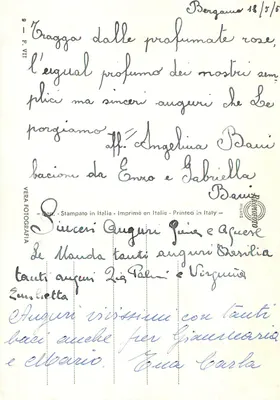 Bergamo 18/7/6
Tragga dalle profumate rose
l'egual profumo dei nostri sem
plici ma sinceri auguri che Le
porgiamo
aff. Angelina Bani
bacioni da Enzo e Gabriella
Bani
VERA FOTOGRAFIA
Stampato in Italia - Imprimé en Italie - Printed in Italy
Sinceri Auguri e Agnese
Le Manda tanti auguri Ersilia
tanti auguri Zia e Virginia
Enrichetta
Auguri vivissimi con tanti
baci anche per Gianmaria
e Mario. Carla